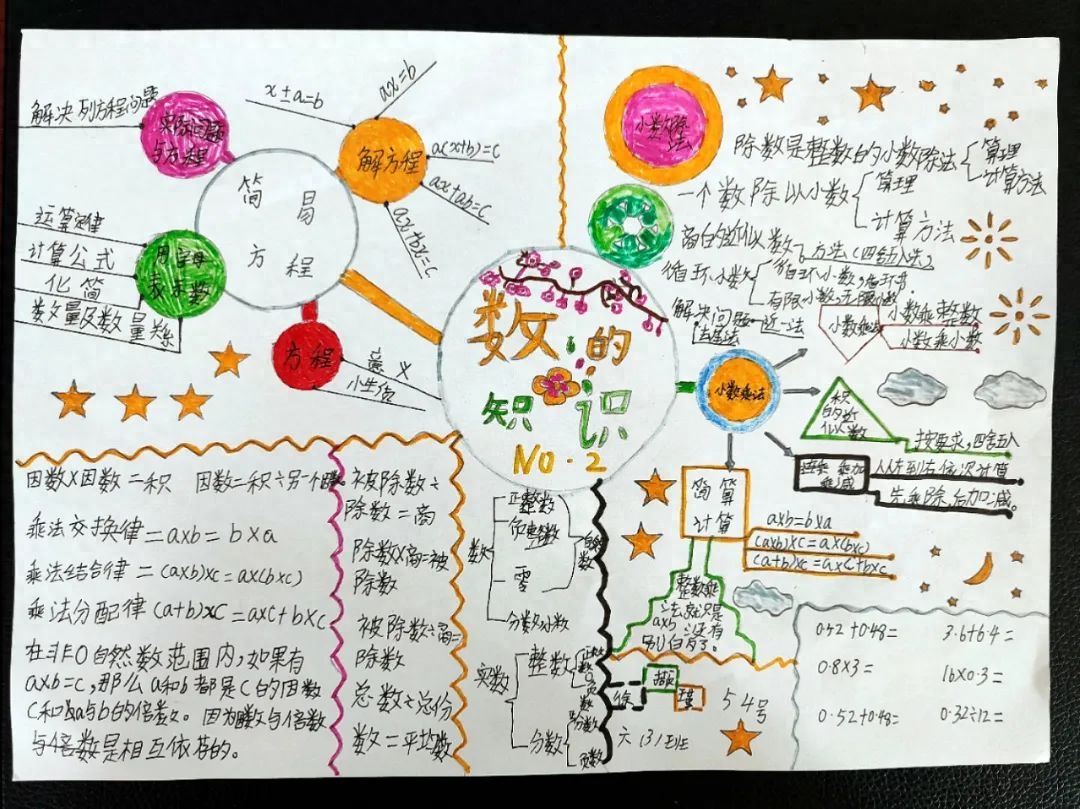 数的
知识
NO.2
简易
方程
解决列方程问题
实际问题
与方程
解方程
x±a=b
ax=b
a(x+b)=c
ax+ab=c
ax+bx=c
运算定律
计算公式
化简
数量及数量关系
用字母
表示数
方程
意义
小数除
法
除数是整数的小数除法
算理
计算方法
一个数除以小数
算理
计算方法
商的近似数
方法(四舍五入法)
循环小数
有限小数,无限小数
解决问题
进一法
去尾法
小数乘法
小数乘法
小数乘整数
小数乘小数
积
的近
似数
按要求,四舍五入
连乘 乘加
乘减
从左到右依次计算
先乘除,后加减。
简算
计算
axb=bxa
(axb)xc=ax(bxc)
(a+b)xc=axc+bxc
整数乘
法
axb
还有
因数x因数=积 因数=积÷另一个因数
乘法交换律=axb=bxa
乘法结合律=(axb)xc=ax(bxc)
乘法分配律(a+b)xc=axc+bxc
在非0自然数范围内,如果有
axb=c,那么a和b都是c的因数
与倍数是相互依存的。
被除数÷
除数=商
除数x商=被
除数
被除数÷商=
除数
总数÷总份
数=平均数
数
正整数
负整数
零
分数小数
实数
整数
分数
六(3)班
54号
0.52+0.48=
3.6+6.4=
0.8x3=
16x0.3=
0.52+0.48=
0.32÷12=